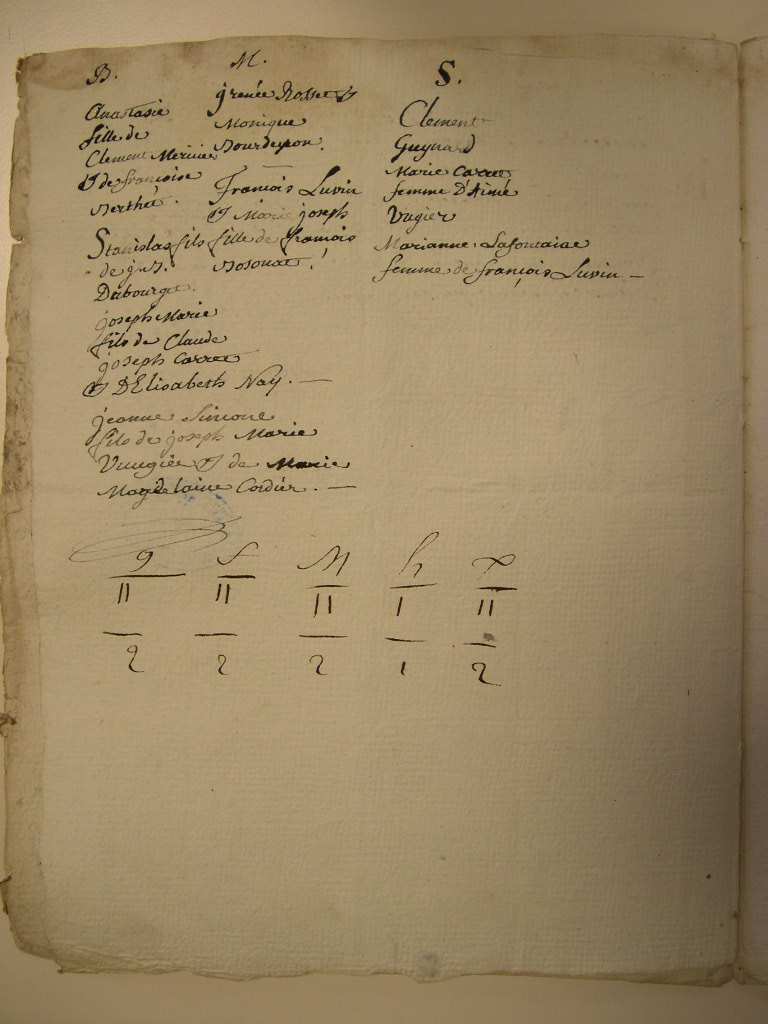 B.
Anastasie
fille de
Clement Mercier
& de françoise
Berthet.
Stanislas fils
de j. B.
Dubourget.
joseph Marie
fils de Claude
joseph Carret
& D'Elisabeth Nay. —
jeanne Simone
fils de joseph Marie
Vuugier & de Marie
Magdelaine Cordier. —
M.
jrenée Rosset &
Monique
Bourdeyron.
François Luvin
& Marie joseph
fille de francois
Bosonat.
S.
Clement
Guynard
Marie Carret
femme D'Aimé
Vugier
Marianne Lafontaine
femme de françois Luvin —
g f M h
II II II I II
2 2 2 1 2